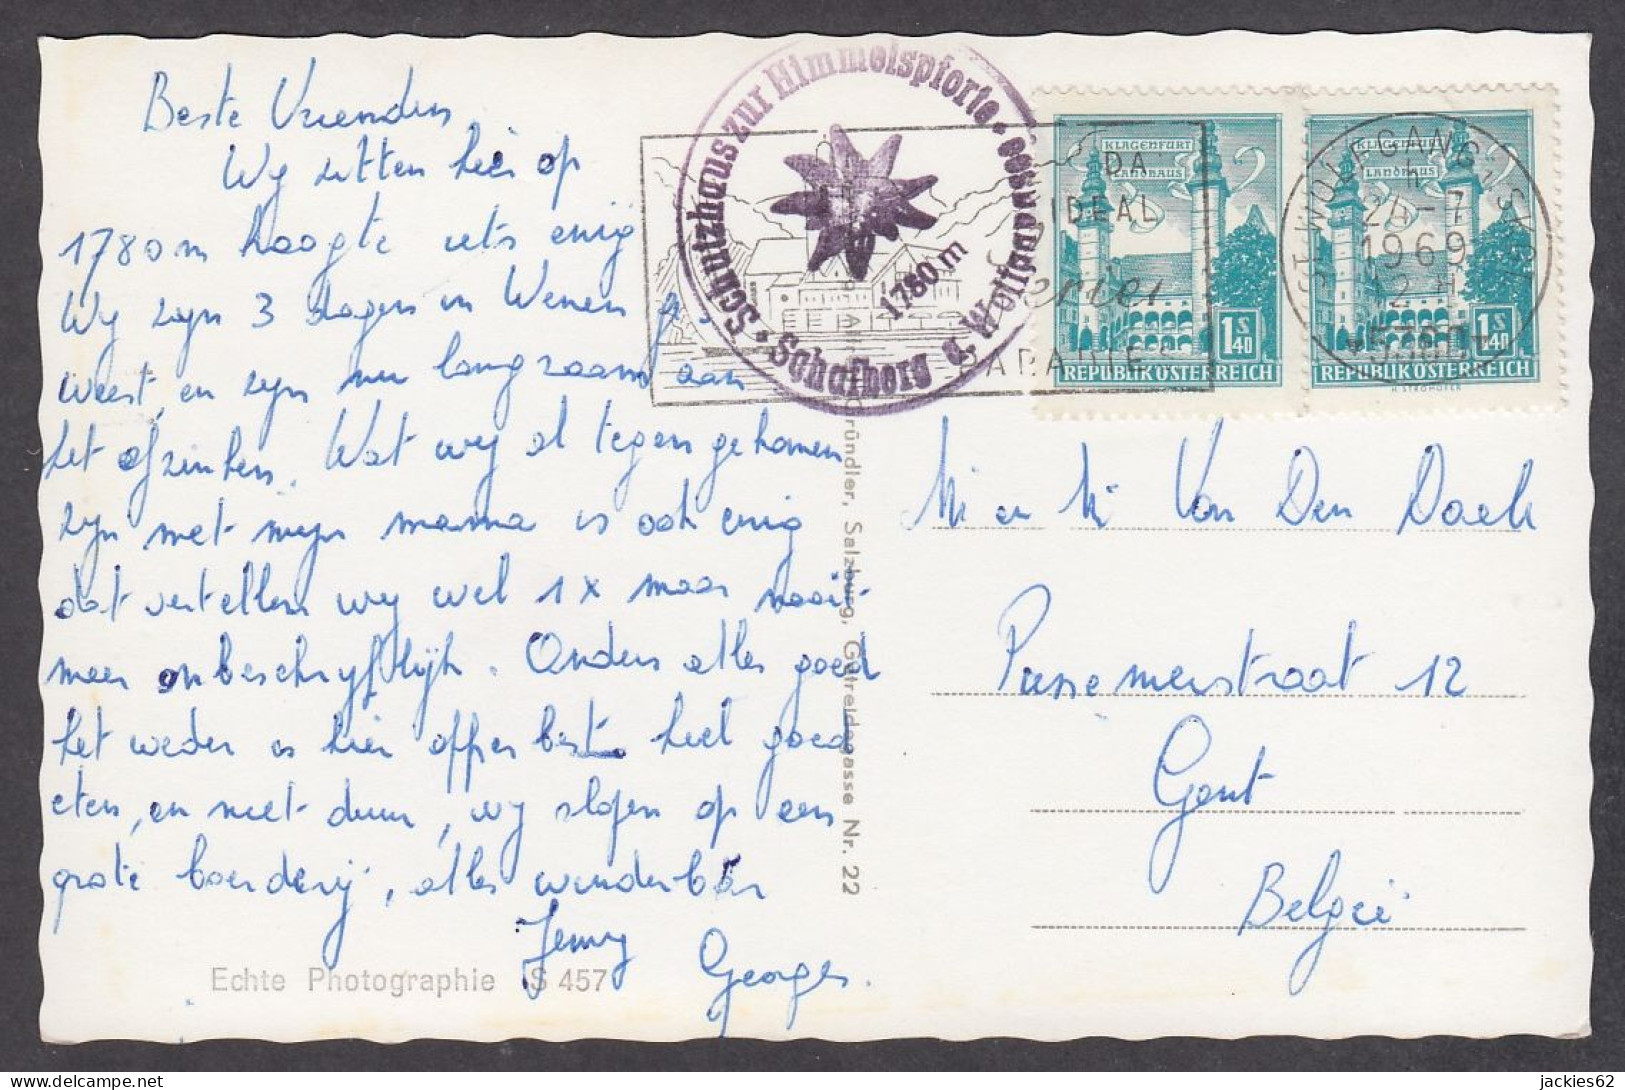 Beste Vrienden
Wij zitten hier op
1780 m hoogte iets enig
Wij zijn 3 dagen in Wenen ge-
weest, en zijn nu langzaam aan
het afzinken. Wat wij al tegen gekomen
zijn met mijn mama is ook enig
dat vertellen wij wel 1 x maar nooit
meer onbeschrijflijk. Anders alles goed
het weder is hier opper best heel goed
eten, en niet duur, wij slapen op een
grote boerderij, alles wunderbar
Jenny
Georges.
Echte Photographie S 457
Schutzhaus zur Himmelspforte
1780 m
Schafberg a. Wolfgangsee
DA
IDEAL
PARADIES
KLAGENFURT
LANDHAUS
1 S 40
REPUBLIK ÖSTERREICH
KLAGENFURT
LANDHAUS
1 S 40
REPUBLIK ÖSTERREICH
H. STROHOFER
ST. WOLFGANG
24-7
1969
12 H
ründler, Salzburg, Getreidegasse Nr. 22
M en M Van Den Daele
12
Gent
België
jackies62